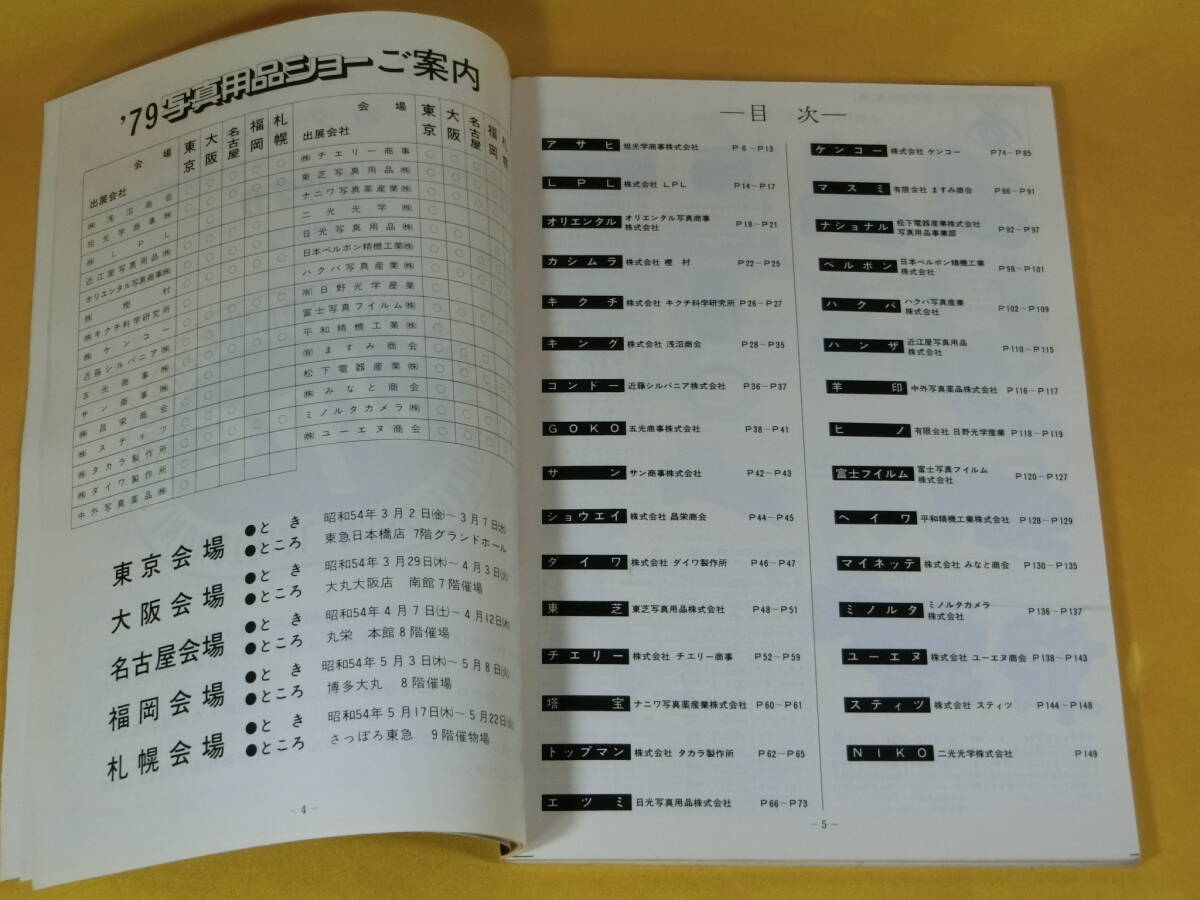 '79写真用品ショーご案内
会場 東京 大阪 名古屋 福岡 札幌
出展会社
㈱浅沼商会
旭光学商事㈱
㈱LPL
近江屋写真用品㈱
オリエンタル写真商事㈱
㈱樫村
㈱キクチ科学研究所
㈱ケンコー
近藤シルバニア㈱
五光商事㈱
サン商事㈱
㈱昌栄商会
㈱スティツ
㈱タカラ製作所
㈱ダイワ製作所
中外写真薬品㈱
会場 東京 大阪 名古屋 福岡 札幌
出展会社
㈱チェリー商事
東芝写真用品㈱
ナニワ写真薬産業㈱
二光光学㈱
日光写真用品㈱
日本ベルボン精機工業㈱
ハクバ写真産業㈱
㈲日野光学産業
富士写真フイルム㈱
平和精機工業㈱
㈲ますみ商会
松下電器産業㈱
㈱みなと商会
ミノルタカメラ㈱
㈱ユーエヌ商会
東京会場
●とき 昭和54年3月2日㈮～3月7日㈬
●ところ 東急日本橋店 7階グランドホール
大阪会場
●とき 昭和54年3月29日㈭～4月3日㈫
●ところ 大丸大阪店 南館7階催場
名古屋会場
●とき 昭和54年4月7日㈯～4月12日㈭
●ところ 丸栄 本館8階催場
福岡会場
●とき 昭和54年5月3日㈭～5月8日㈫
●ところ 博多大丸 8階催場
札幌会場
●とき 昭和54年5月17日㈭～5月22日㈫
●ところ さっぽろ東急 9階催物場
－4－
―目次―
アサヒ 旭光学商事株式会社 P6～P13
LPL 株式会社 LPL P14～P17
オリエンタル オリエンタル写真商事株式会社 P18～P21
カシムラ 株式会社 樫村 P22～P25
キクチ 株式会社 キクチ科学研究所 P26～P27
キング 株式会社 浅沼商会 P28～P35
コンドー 近藤シルバニア株式会社 P36～P37
GOKO 五光商事株式会社 P38～P41
サン サン商事株式会社 P42～P43
ショウエイ 株式会社 昌栄商会 P44～P45
タイワ 株式会社 ダイワ製作所 P46～P47
東芝 東芝写真用品株式会社 P48～P51
チエリー 株式会社 チエリー商事 P52～P59
塔宝 ナニワ写真薬産業株式会社 P60～P61
トップマン 株式会社 タカラ製作所 P62～P65
エツミ 日光写真用品株式会社 P66～P73
ケンコー 株式会社 ケンコー P74～P85
マスミ 有限会社 ますみ商会 P86～P91
ナショナル 松下電器産業株式会社 写真用品事業部 P92～P97
ベルボン 日本ベルボン精機工業株式会社 P98～P101
ハクバ ハクバ写真産業株式会社 P102～P109
ハンザ 近江屋写真用品株式会社 P110～P115
羊印 中外写真薬品株式会社 P116～P117
ヒノ 有限会社 日野光学産業 P118～P119
富士フイルム 富士写真フイルム株式会社 P120～P127
ヘイワ 平和精機工業株式会社 P128～P129
マイネッテ 株式会社 みなと商会 P130～P135
ミノルタ ミノルタカメラ株式会社 P136～P137
ユーエヌ 株式会社 ユーエヌ商会 P138～P143
スティツ 株式会社 スティツ P144～P148
NIKO 二光光学株式会社 P149
－5－